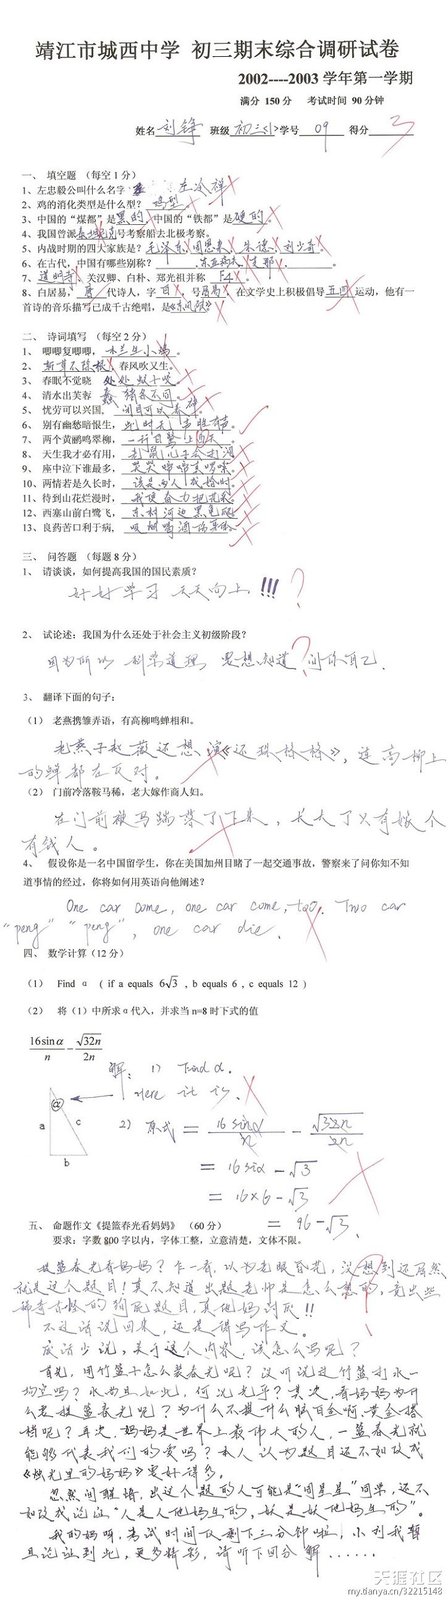 靖江市城西中学 初三期末综合调研试卷
2002----2003 学年第一学期
满分 150 分 考试时间 90 分钟
姓名 刘铮 班级 初三(1) 学号 09 得分 3
一、 填空题 (每空 1 分)
1、左忠毅公叫什么名字 左冷禅 。
2、鸡的消化类型是什么型？ 鸡型
3、中国的“煤都”是 黑的 ，中国的“铁都”是 硬的 。
4、我国曾派 号考察船去北极考察。
5、内战时期的四大家族是？ 毛泽东，周恩来，朱德，刘少奇
6、在古代，中国有哪些别称？ 东亚病夫，支那
7、 道明寺 、关汉卿、白朴、郑光祖并称 F4 。
8、白居易， 唐 代诗人，字 ，号 ，在文学史上积极倡导 五四 运动，他有一
首诗的音乐描写已成千古绝唱，是《东风破》
二、 诗词填写 (每空 2 分)
1、 唧唧复唧唧， 木兰生小鸡 。
2、 斩草不除根 ，春风吹又生。
3、 春眠不觉晓 处处蚊子咬 。
4、 清水出芙蓉
5、 忧劳可以兴国，
6、 别有幽愁暗恨生， 此时无声胜有声 。
7、 两个黄鹂鸣翠柳， 一行白鹭上西天 。
8、 天生我才必有用，
9、 座中泣下谁最多，
10、两情若是久长时， 该是两人成婚时 。
11、待到山花烂漫时， 我便奋力把花采
12、西塞山前白鹭飞， 东村河边黑龟爬
13、良药苦口利于病，
三、 问答题 (每题 8 分)
1、 请谈谈，如何提高我国的国民素质？
好好学习 天天向上!!!
2、 试论述：我国为什么还处于社会主义初级阶段？
因为所以 科学道理 要想知道 问你自己.
3、 翻译下面的句子：
(1) 老燕携雏弄语，有高柳鸣蝉相和。
老燕子赵薇还想演《还珠格格》，连高柳上
的蝉都在反对。
(2) 门前冷落鞍马稀，老大嫁作商人妇。
在门前被马踹 了下来，长大了只有嫁个
有钱人。
4、 假设你是一名中国留学生，你在美国加州目睹了一起交通事故，警察来了问你知不知
道事情的经过，你将如何用英语向他阐述？
One car come, one car come, too. Two car
“peng” “peng”, one car die.
四、 数学计算(12 分)
(1) Find α ( if a equals 6√3 , b equals 6 , c equals 12 )
(2) 将（1）中所求α代入，并求当 n=8 时下式的值
16sinα/n − √32n/2n
解： 1) Find α.
Here it is.
α
a c
b
2) 原式 = 16sinα/n − √32n/2n
= 16siα − √3
= 16×6 − √3
= 96 − √3.
五、 命题作文《提篮春光看妈妈》 (60 分)
要求：字数 800 字以内，字体工整，立意清楚，文体不限。
提篮春光看妈妈？乍一看，以为老眼昏花，没想到还居然
就是这个题目！真不知道出题老师是怎么想的，竟出些
稀奇古怪的 题目，真他妈讨厌!!
不过话说回来，还是得写作文。
废话少说，关于这个内容，该怎么写呢？
首先，用竹篮子怎么装春光呢？没听说过竹篮打水一
场空吗？水尚且如此，何况光乎？其次，看妈妈为什
么要提篮春光呢？为什么不提什么脑白金啊、黄金搭
档呢？再次，妈妈是世界上最伟大的人，一篮春光就
能够代表我们的爱吗？本人认为题目还不如改成
《烛光里的妈妈》要好得多。
忽然间醒悟，出这个题的人可能是“周星星”同学，还不
如改成论证“人是人他妈生的，妖是妖他妈生的”。
我的妈呀，考试时间仅剩下三分钟啦，小刘我暂
且论证到此，更多精彩，请听下回分解......
天涯社区
my.tianya.cn/32215148